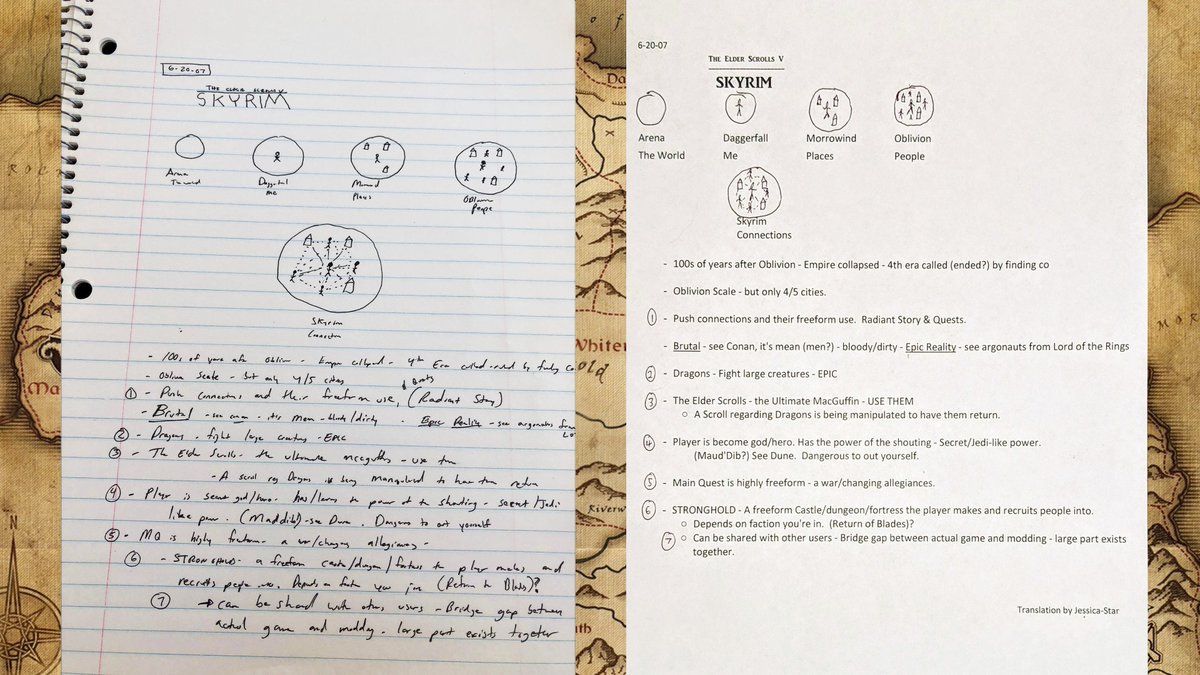 6-20-07
THE ELDER SCROLLS V
SKYRIM
Arena
Daggerfall
Me
Places
Oblivion
People
Skyrim
Connection
- 100s of years after Oblivion - Empire collapsed - 4th Era called ended by finding
- Oblivion Scale - but only 4/5 cities
Quests
① - Push connections and their freeform use, (Radiant Story)
- Brutal - see conan - its mean - bloody/dirty - Epic Reality - see argonauts from
Lo
② - Dragons - fight large creatures - EPIC
③ - The Elder Scrolls - the ultimate mcguffin - use them
- A scroll reg Dragons is being manipulated to have them return
④ - Player is secret god/hero. has/learns the power of the shouting - secret/Jedi
like power. (Maddib) - see Dune. Dangerous to out yourself
⑤ - MQ is highly freeform - a war/changing allegiances -
⑥ - STRONGHOLD - a freeform castle/dungeon/fortress the player makes and
recruits people into. Depends on faction you join (Return to Blades)?
⑦ → can be shared with others users - Bridge gap between
actual game and modding - large part exists together
6-20-07
THE ELDER SCROLLS V
SKYRIM
Arena
The World
Daggerfall
Me
Morrowind
Places
Oblivion
People
Skyrim
Connections
- 100s of years after Oblivion - Empire collapsed - 4th era called (ended?) by finding co
- Oblivion Scale - but only 4/5 cities.
① - Push connections and their freeform use. Radiant Story & Quests.
- Brutal - see Conan, it's mean (men?) - bloody/dirty - Epic Reality - see argonauts from Lord of the Rings
② - Dragons - Fight large creatures - EPIC
③ - The Elder Scrolls - the Ultimate MacGuffin - USE THEM
○ A Scroll regarding Dragons is being manipulated to have them return.
④ - Player is become god/hero. Has the power of the shouting - Secret/Jedi-like power.
(Maud'Dib?) See Dune. Dangerous to out yourself.
⑤ - Main Quest is highly freeform - a war/changing allegiances.
⑥ - STRONGHOLD - A freeform Castle/dungeon/fortress the player makes and recruits people into.
○ Depends on faction you're in. (Return of Blades)?
⑦ ○ Can be shared with other users - Bridge gap between actual game and modding - large part exists
together.
Translation by Jessica-Star
Whiter
old
Riverw
N